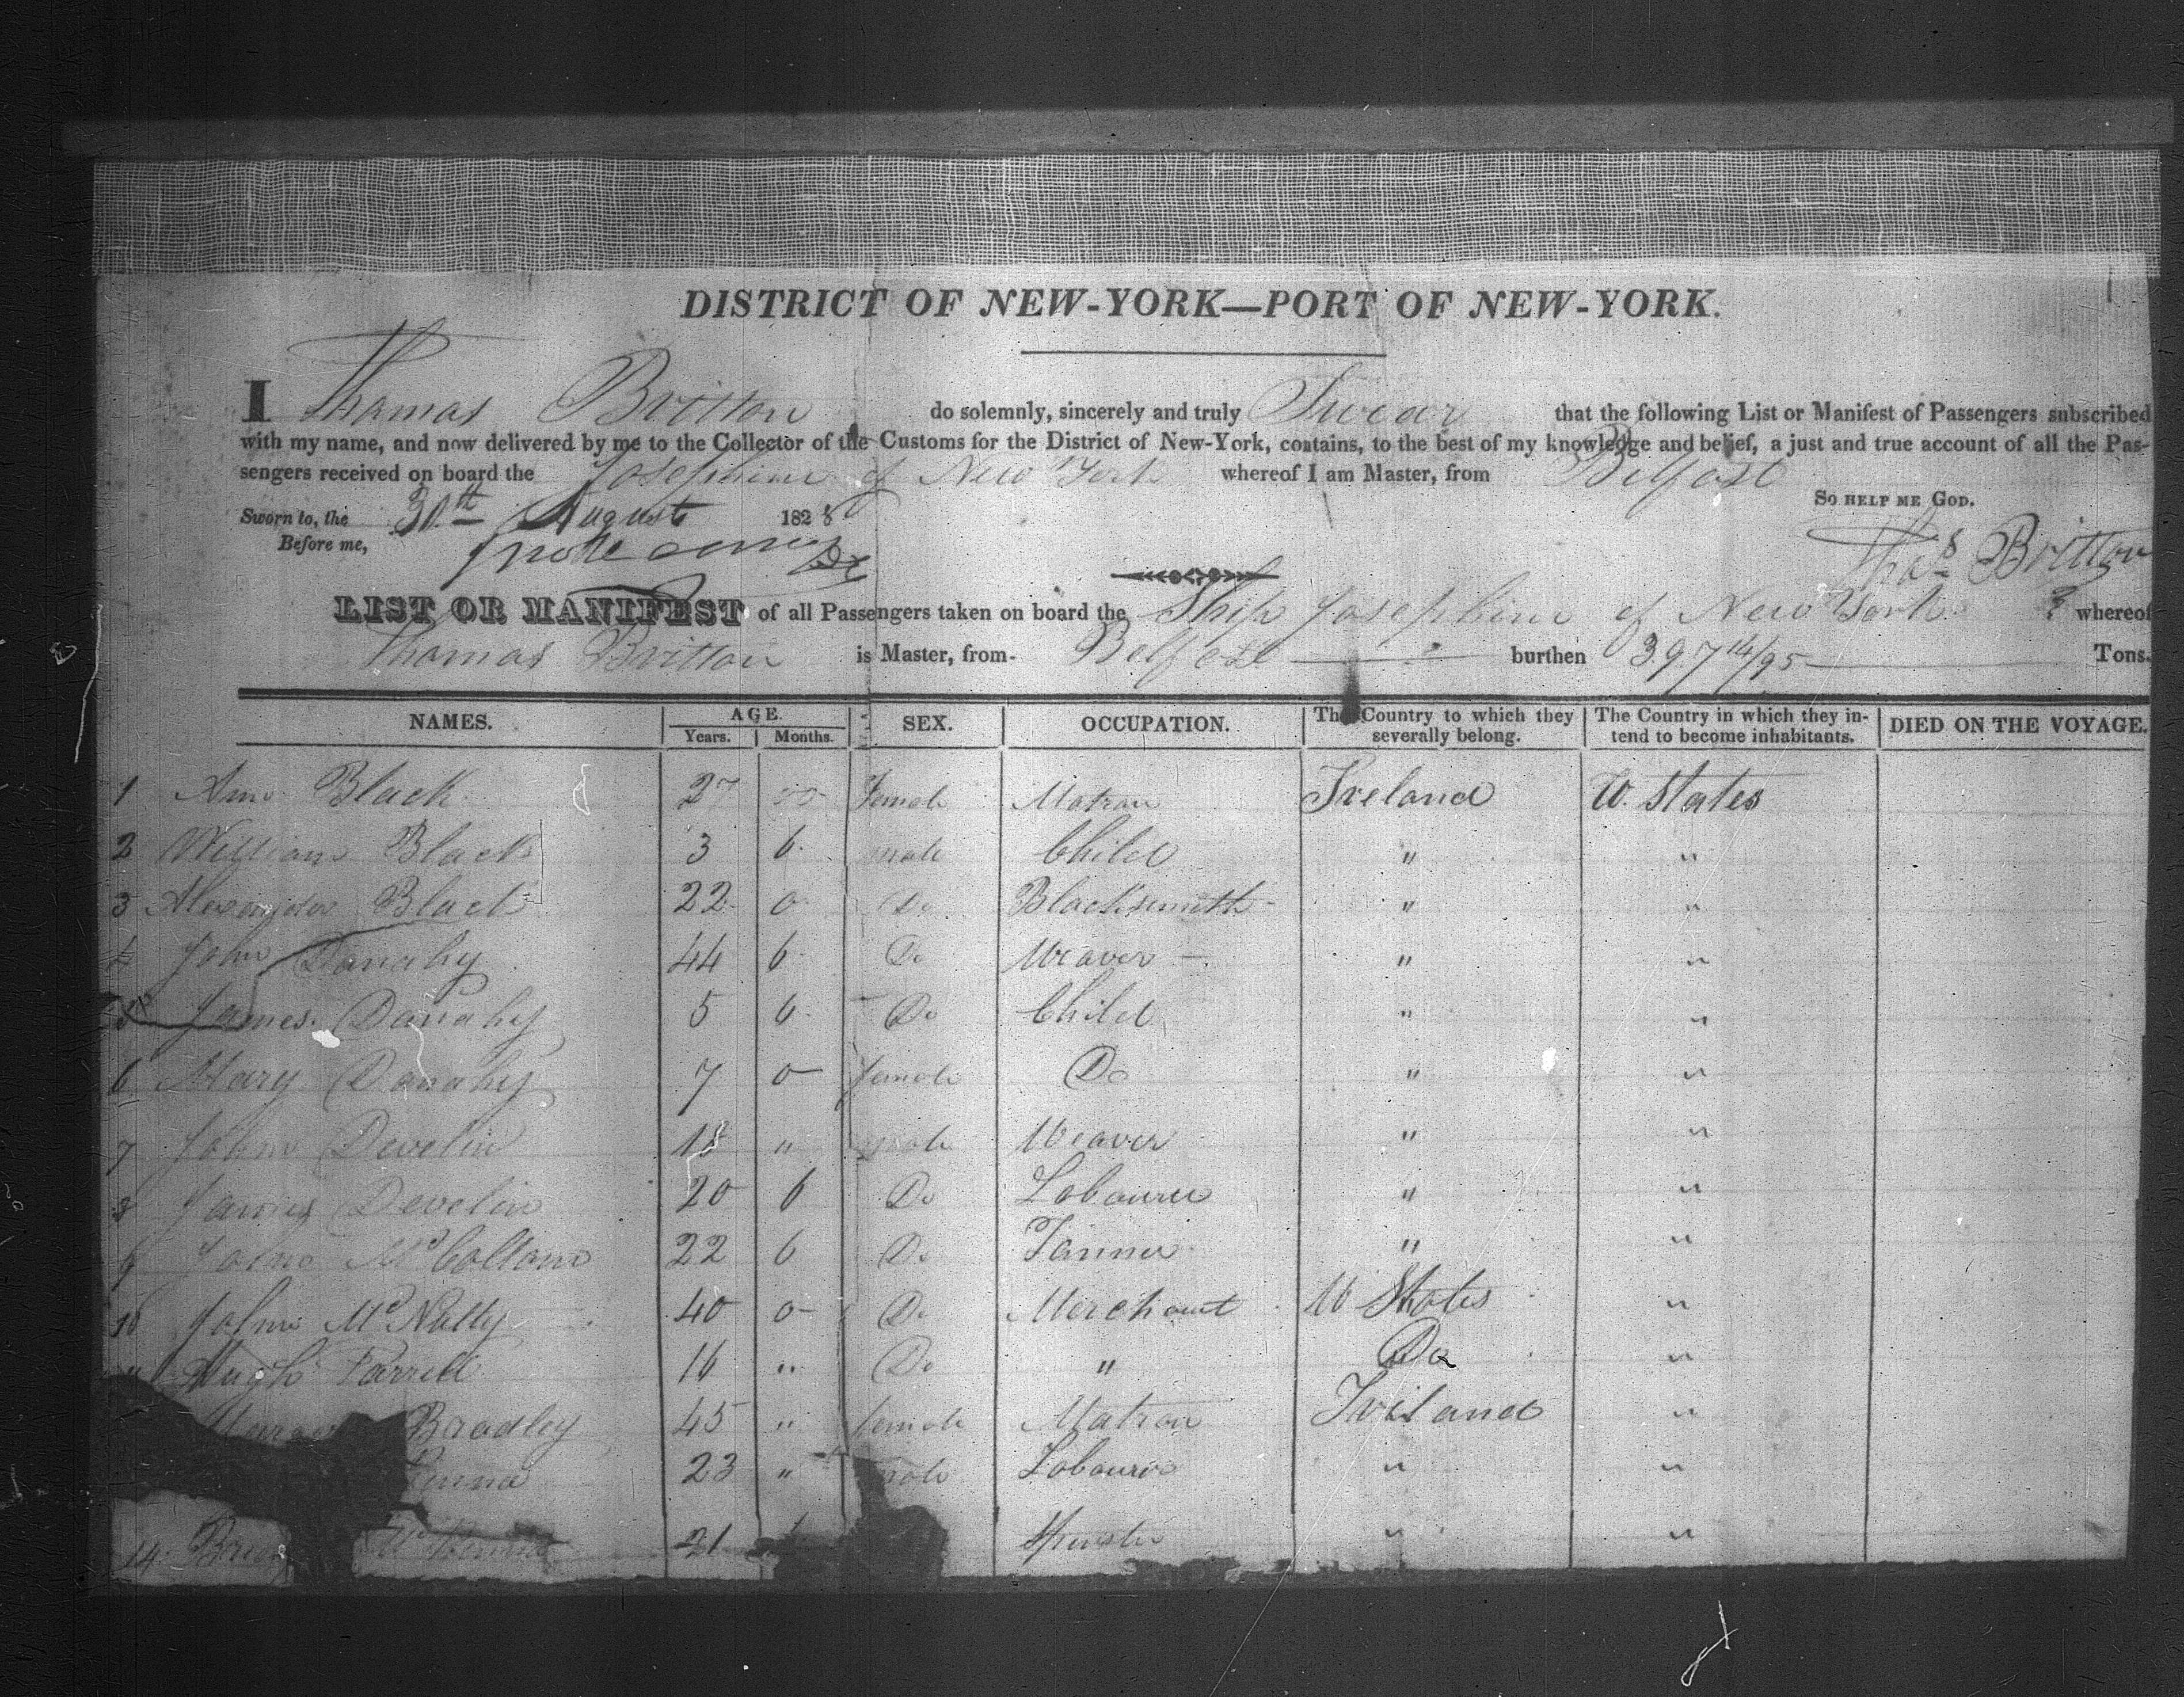 DISTRICT OF NEW-YORK—PORT OF NEW-YORK.
I Thomas Britton do solemnly, sincerely and truly Swear that the following List or Manifest of Passengers subscribed
with my name, and now delivered by me to the Collector of the Customs for the District of New-York, contains, to the best of my knowledge and belief, a just and true account of all the Pas-
sengers received on board the Josephine of New York whereof I am Master, from Belfast
SO HELP ME GOD.
Sworn to, the 30th August 1828
Before me,
Thos Britton
LIST OR MANIFEST of all Passengers taken on board the Ship Josephine of New York whereof
Thomas Britton is Master, from Belfast burthen 397 14/95 Tons.
NAMES. AGE. Years. Months. SEX. OCCUPATION. The Country to which they severally belong. The Country in which they in-tend to become inhabitants. DIED ON THE VOYAGE.
1 Ann Black 27 Female Matron Ireland U. States
2 William Black 3 6 male Child " "
3 Alexander Black 22 0 Do Blacksmith " "
4 John Danahy 44 6 Do Weaver " "
5 James Danahy 5 6 Do Child " "
6 Mary Danahy 7 0 female Do " "
7 John Develin 18 " male Weaver " "
8 James Develin 20 6 Do Labourer " "
9 John McCollam 22 6 Do Tanner " "
10 John McNulty 40 0 Do Merchant U States "
11 Hugh Farrell 16 " Do " Do "
Bradley 45 " female Matron Ireland "
23 " male Labourer " "
14 21 Spinster " "